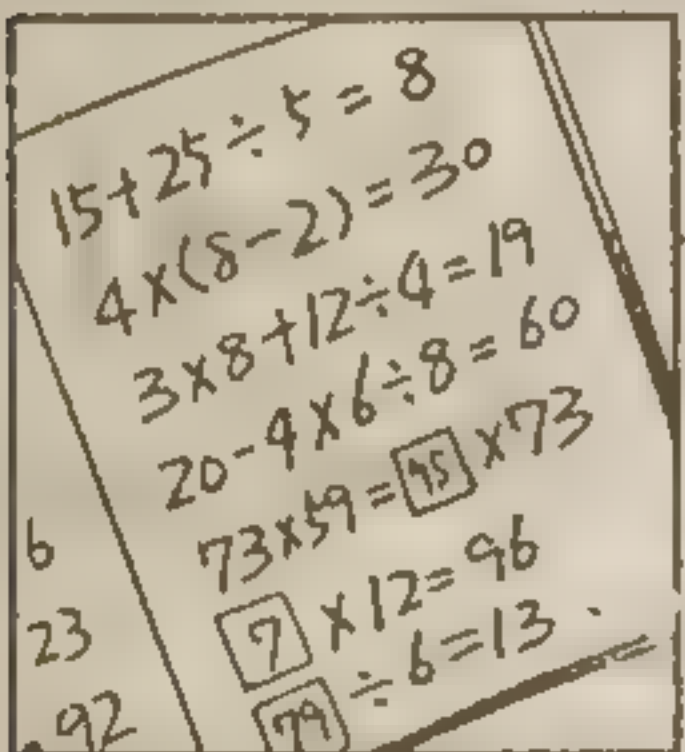 15+25÷5=8
4×(8-2)=30
3×8+12÷4=19
20-4×6÷8=60
73×59=95×73
7×12=96
79÷6=13
6
23
92